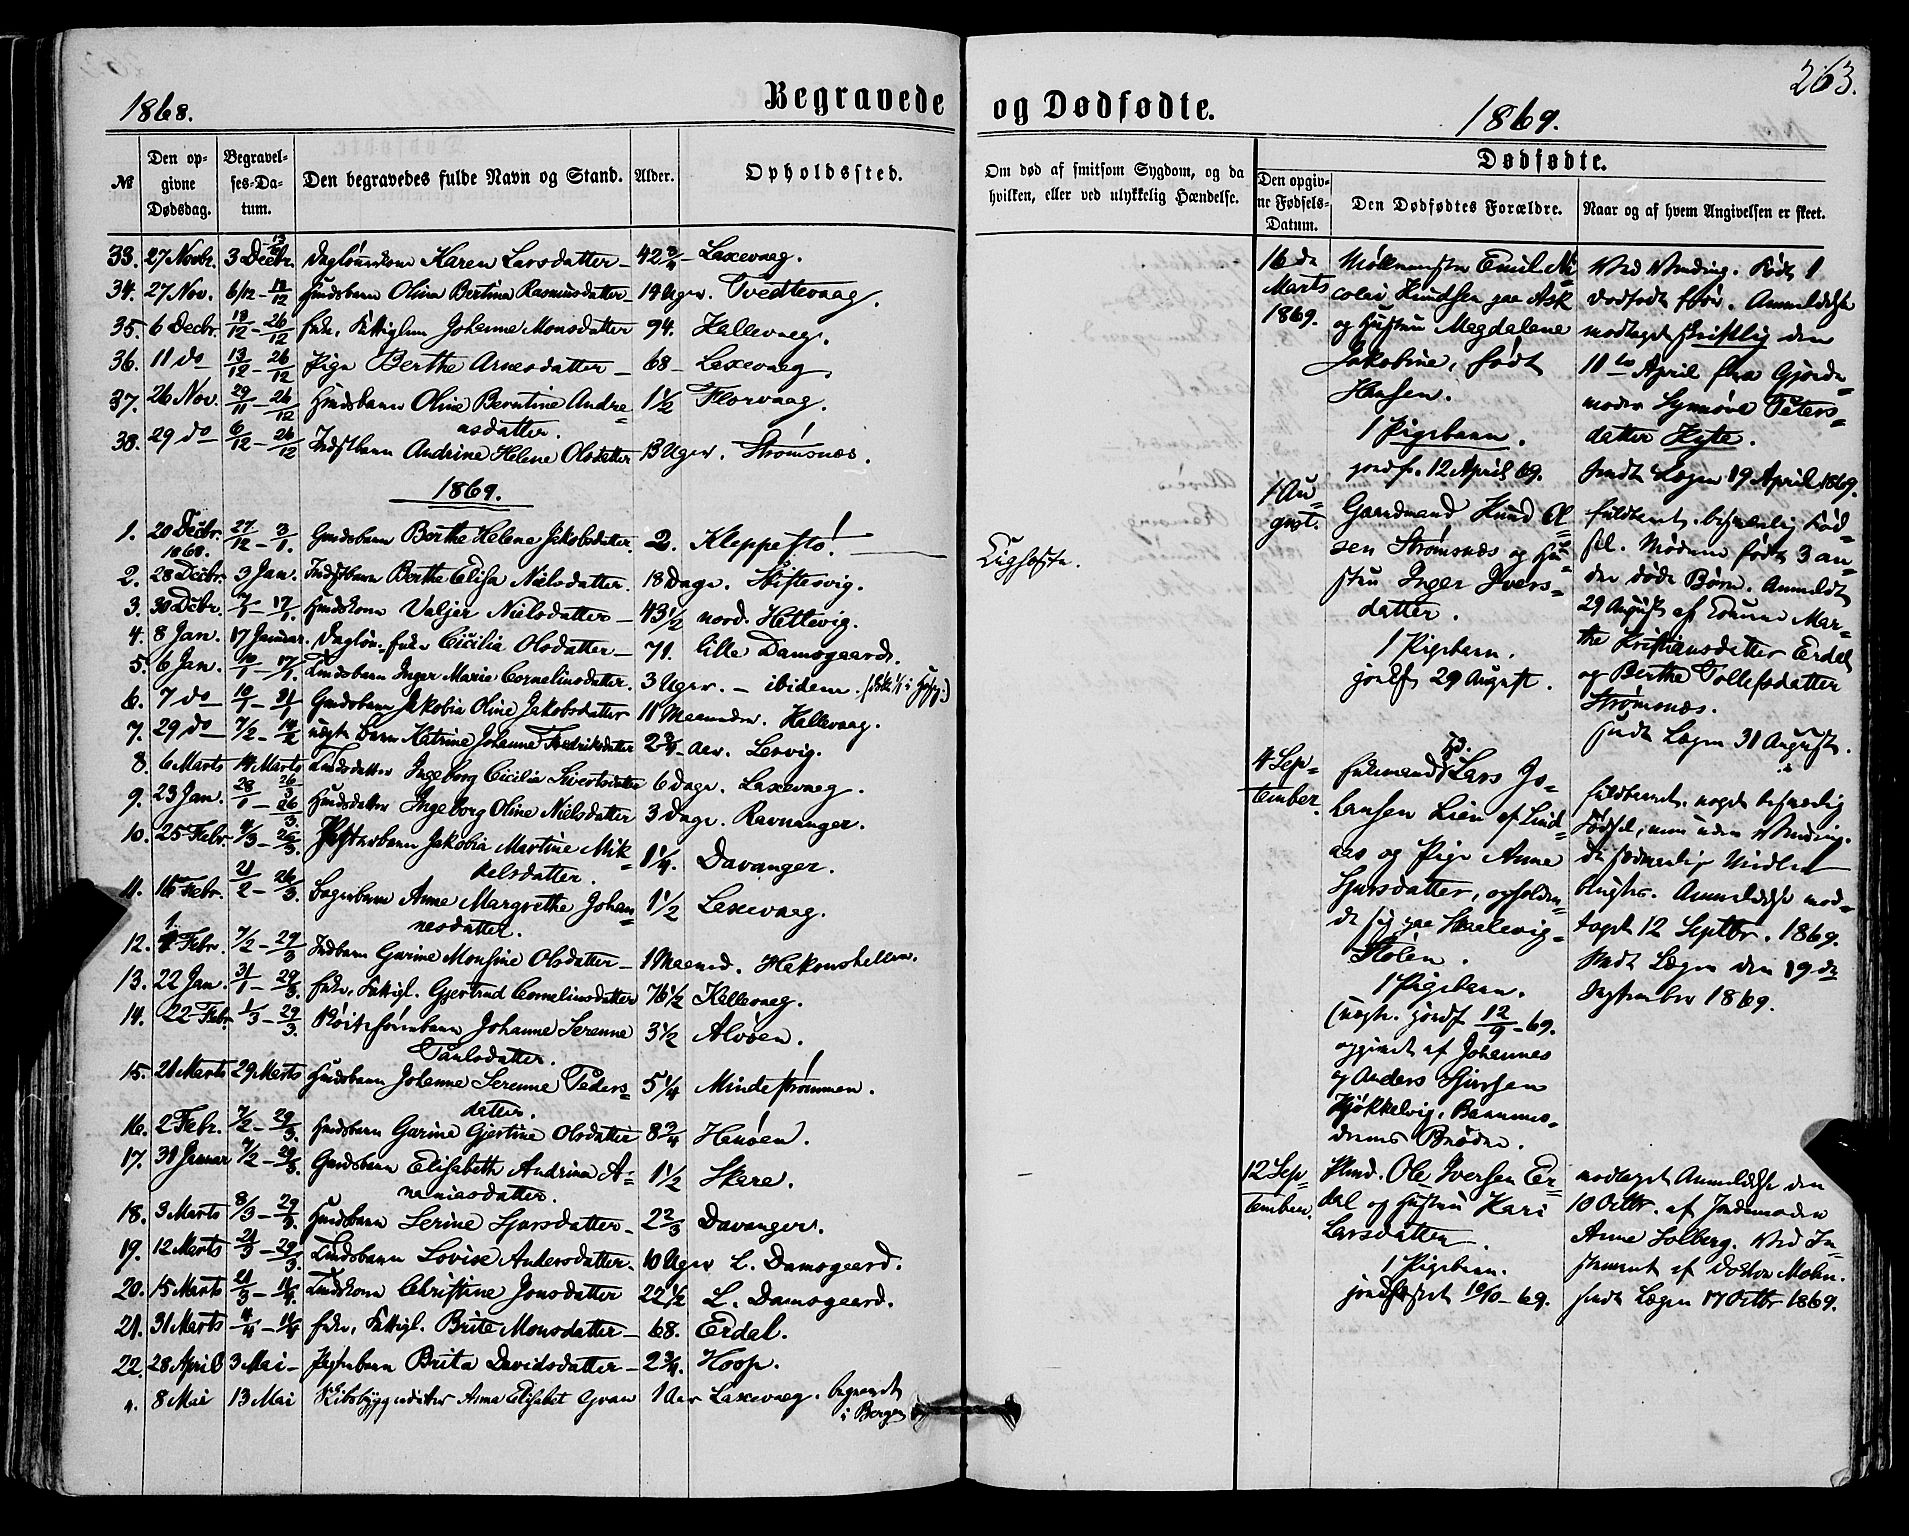 263.
1868.
Begravede
og Dødfødte.
1869.
№
Den opgivne Dødsdag.
Begravelses-Datum.
Den begravedes fulde Navn og Stand.
Alder.
Opholdssted.
Om død af smitsom Sygdom, og da hvilken, eller ved ulykkelig Hændelse.
Dødfødte.
Den opgivne Fødsels-Datum.
Den Dødfødtes Forældre.
Naar og af hvem Angivelsen er skeet.
33. 27 Novbr. 3 Decbr. Karen Larsdatter 42 3/4 Laxevaag.
34. 27 Nov. 6/12 – 12/12 Husbarn Olina Bertina Rasmusdatter 14 Uger. Tvedtevaag.
35. 6 Decbr. 13/12 – 26/12 Johanne Monsdatter 94. Kallevaag.
36. 11 do 13/12 – 26/12 Pige Berthe Arnesdatter 68 Laxevaag.
37. 26 Nov. 29/11 – 26/12 Husbarn Oline Berntine Andre-
asdatter. 1 1/2 Florvaag.
38. 29 do 6/12 – 26/12 Andrine Helene Olsdatter 13 Uger. Strømsnæs.
1869.
1. 20 Decbr. 1868. 27/12 – 3/1. Berthe Helene Jakobsdatter. 2. Kleppestø.
2. 28 Decbr. 3 Jan. Berthe Elisa Nielsdatter. 18 Dage. Skiftesvig.
3. 30 Decbr. – 17/1. Nielsdatter 43 1/2 nord. Hettevig.
4. 8 Jan. 17 Januar. Cicilia Olsdatter 71. lille Damsgaard.
5. 6 Jan. 10/1 – 17/1. Inger Marie Cornelinsdatter. 3 Uger. – ibidem.
6. 7 do 10/1 – 21/1 Jakobia Oline Jakobsdatter 11 Maaneder. Kallevaag.
7. 29 do 7/2 – 14/2 Katrine Johanne Fredriksdatter 2 3/4 Aar.
8. 6 Marts 14 Marts Ingeborg Cicilia Sivertsdatter 6 Dage. Laxevaag.
9. 23 Jan. 28/1 – 26/3. Ingeborg Oline Nielsdatter 3 Dage. Ravnanger.
10. 25 Febr. – 26/3. Jakobia Martine Mik-
kelsdatter. 1 1/4. Davanger.
11. 16 Febr. 21/2 – 26/3 Anne Margrethe Johan-
nesdatter. 1 1/2 Laxevaag.
12. 1. Febr. 7/2 – 29/3 Garine Monsine Olsdatter 1 Maaned. Hakonshellen.
13. 22 Jan. 31/1 – 29/3. Gjertrud Cornelinsdatter 76 1/2 Kallevaag.
14. 22 Febr. 1/3 – 29/3. Johanne Serenne
Paulsdatter. 3 1/2 Alvøen.
15. 21 Marts 29 Marts Husbarn Johanne Serenne Peders-
datter. 5 1/4 Mindestrømmen.
16. 2 Febr. 7/2 – 29/3. Husbarn Garine Gjertine Olsdatter 8 3/4 Hanøen.
17. 31 Januar 7/2 – 29/3. Elisabeth Andrina A-
naniasdatter. 1 1/2 Skare.
18. 3 Marts 8/3 – 29/3. Husbarn Serine Sjursdatter 2 2/3 Davanger.
19. 12 Marts 21/3 – 29/3. Lovise Andersdatter. 10 Uger L. Damsgaard.
20. 15 Marts 21/3 – Christine Jonsdatter 22 1/2 L. Damsgaard.
21. 31 Marts 4/4 – 11/4 Brite Monsdatter 68. Erdal.
22. 28 April 3 Mai Brita Davidsdatter 2 3/4. Hoop.
8 Mai 13 Mai Anna Elisabet Gran 1 Aar Laxevaag. begravet
i Bergen
16 de
Marts
1869.
Emil Ni-
colai Knudsen paa Ask
og Hustru Magdalene
Jakobine, født
Hansen.
1 Pigebarn.
jordf. 12 April 69.
Ved Vending. Født 1
dødfødt før. Anmeldelse
modtaget skriftlig den
11te April fra Gjorde-
moder Synnøve Peters-
datter Hyte.
Sendt Lægen 19 April 1869.
1 Au-
gust.
Gaardmand Knud Ol-
sen Strømsnæs og Hu-
stru Inger Ivers-
datter.
1 Pigebarn.
jordf. 29 August.
fuldbaaret. besværlig Fød-
sel. Moderen født 3 an-
dre døde Børn. Anmeldt
29 August af Konerne Mar-
the Kristiansdatter Erdal
og Berthe Tollefsdatter
Strømsnæs.
sendt Lægen 31 August.
4 Sep-
tember.
Lars Jo-
hansen Lien af Lind-
aas og Pige Anne
Sjursdatter, opholden-
de sig paa Skaalevig-
Stølen.
1 Pigebarn.
jordf 12/9 – 69.
opgivet af Johannes
og Anders Sjursen
Kjøkkelvig, Barnemo-
derens Brødre.
fuldbaaret. noget besværlig
Fødsel, men uden Vending.
Anmeldelse mod-
taget 12 Septbr. 1869.
Sendt Lægen den 19 de
September 1869.
12 Sep-
tember.
Ole Iversen Er-
dal og Hustru Kari
Larsdatter.
1 Pigebarn.
jordfæstet 10/10 – 69.
modtaget Anmeldelse den
10 Octbr. af Jordemoder
Anne Solberg. Ved In-
strument af Doktor Mohn.
sendt Lægen 17 Octbr 1869.